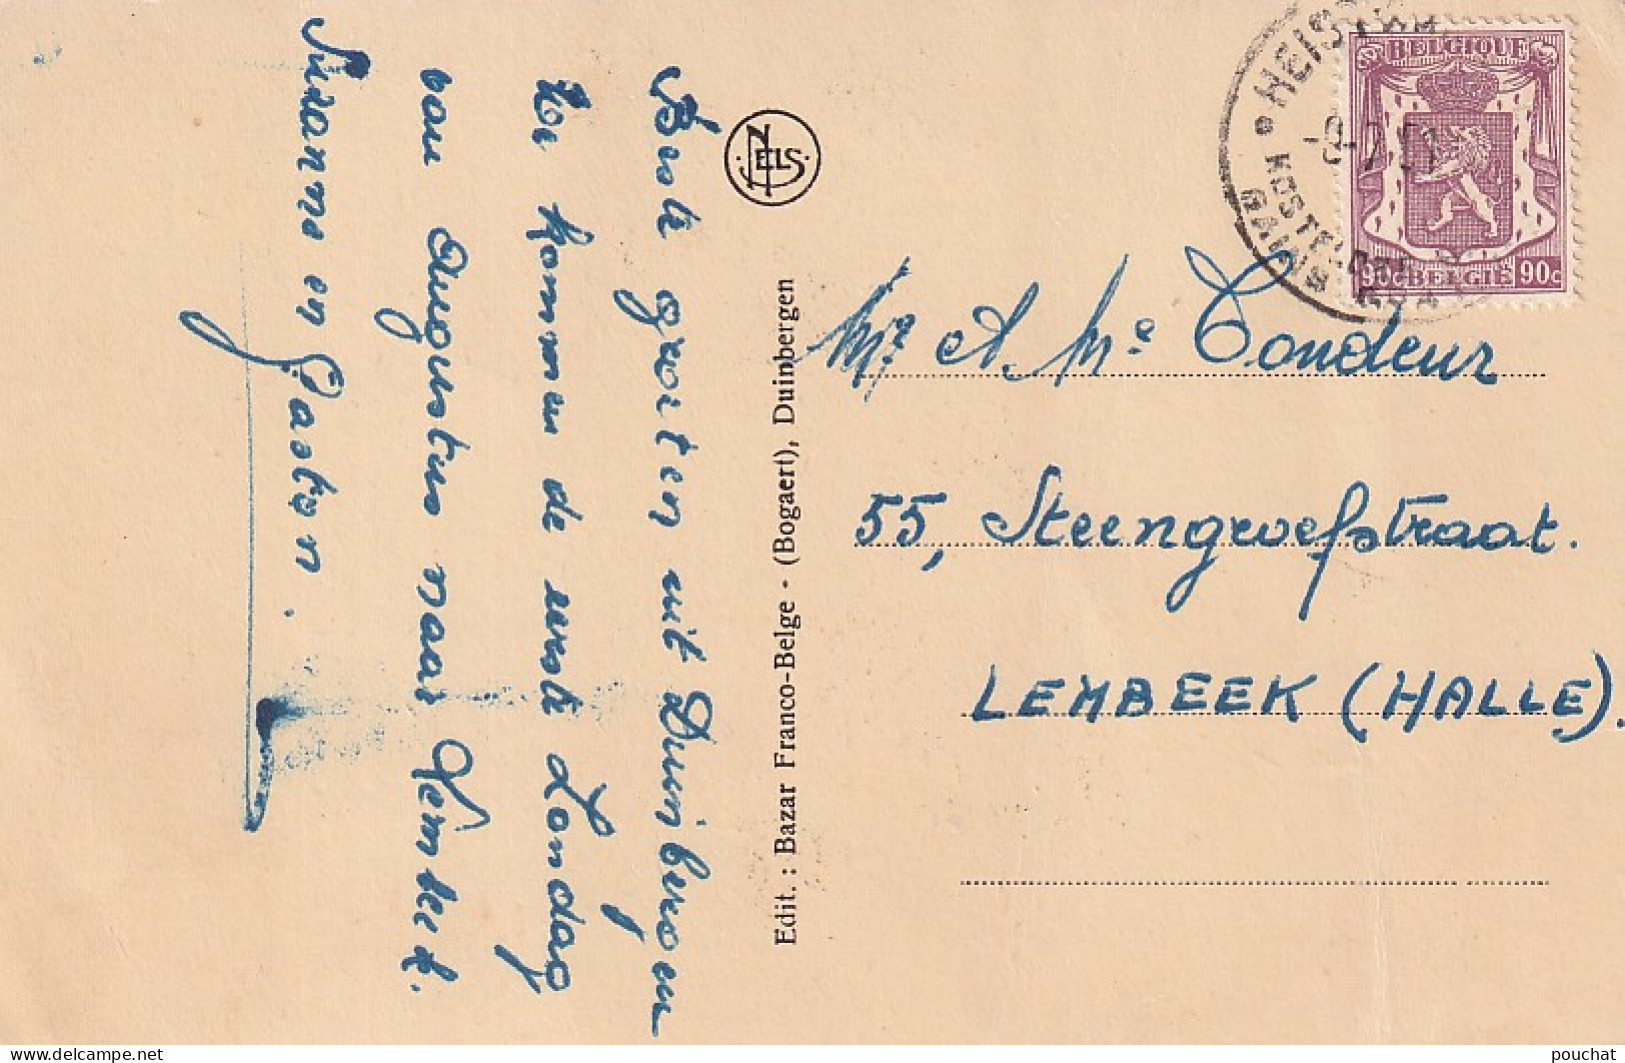 Beste groeten uit Duinbergen
We kommen de eerste Zondag
van Augustus naar Lembeek.
Suzanne en Gaston.
NELS
Edit. : Bazar Franco-Belge - (Bogaert), Duinbergen
HEIST
BELGIQUE
90c BELGIE 90c
Mr A. Me Condeur
55, Steengroefstraat.
LEMBEEK (HALLE).
pouchat